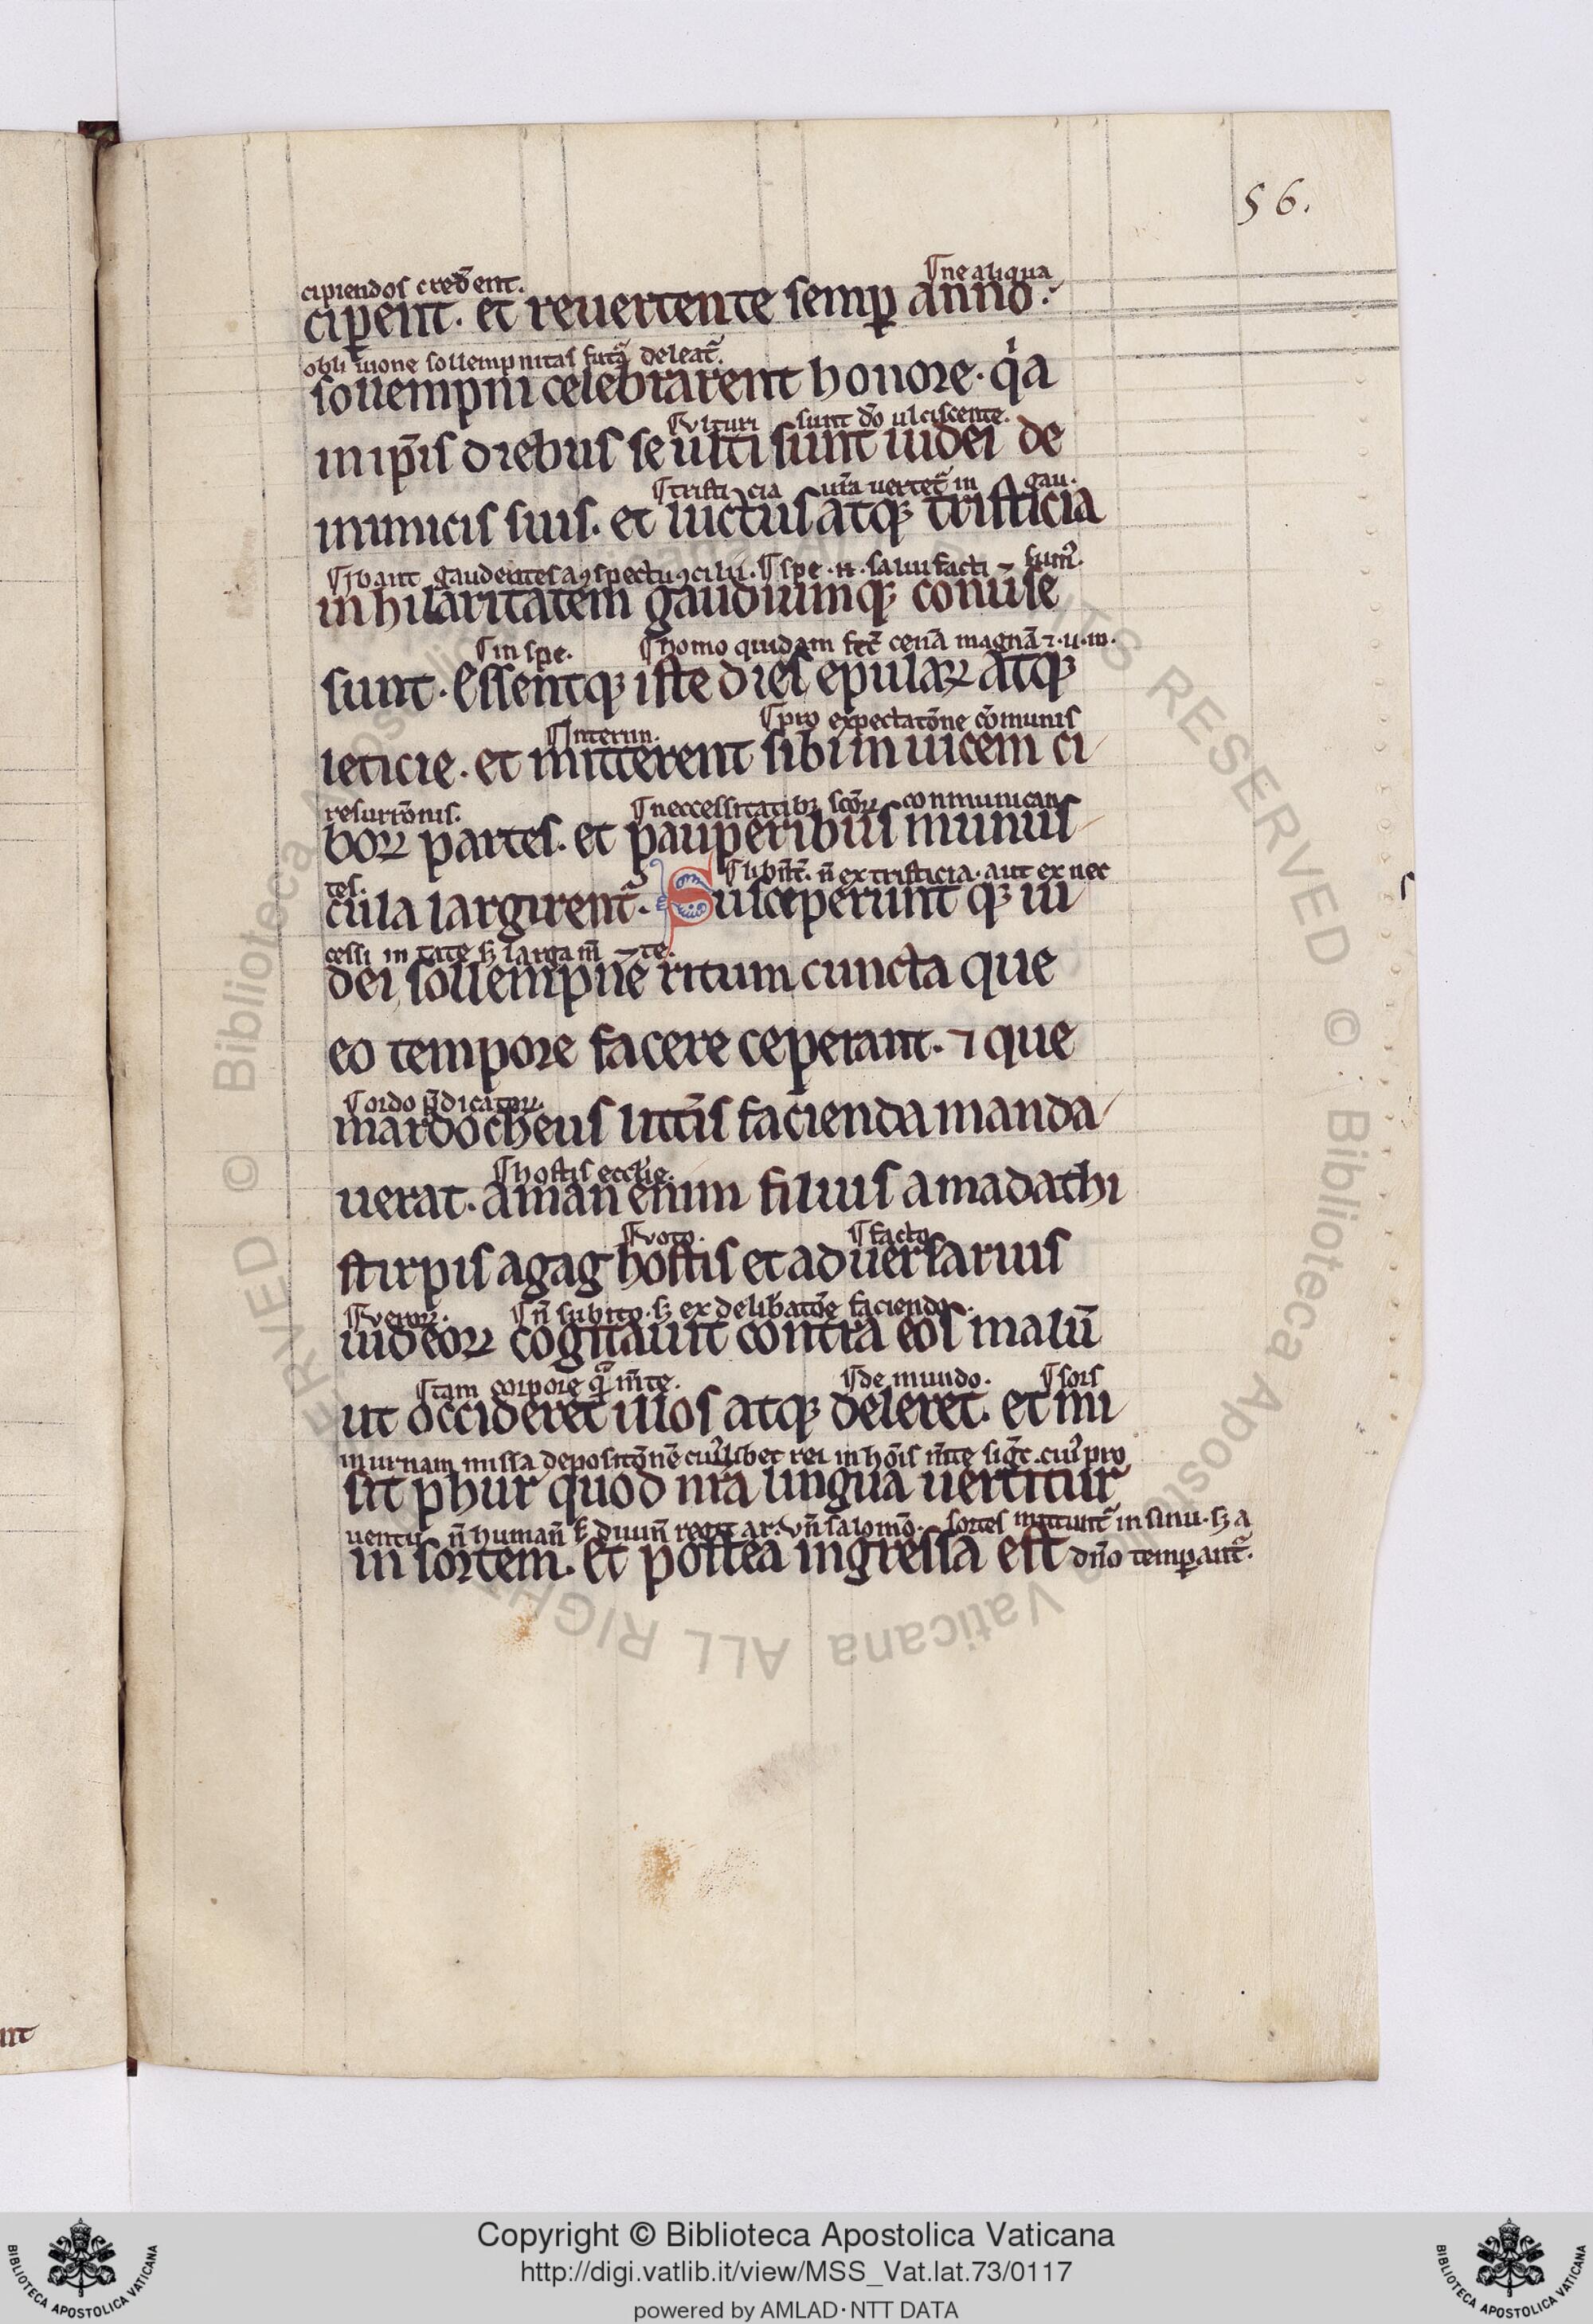 56.
¶ne aliqua
cipiendos cred̄ent.
cip̲ent. et reuertente semp̲ anno.
obliuione sollempnitas futr̄ deleat᷑.
sollempni celebrarent honore. qͥa
¶vlturi sunt dō ulciscente.
in ip̄is diebus se ulti sunt iudei de
¶tristicia ur̄a uertet᷑ in gau.
inimicis suis. et luctus atqꝫ tristicia
¶Ibant gaudentes a ꝯspectu ꝯcilii. ¶spe .n. salui facti sum᷒.
in hilaritatem gaudiumqꝫ conu̇se
¶in spe. ¶homo quidam fec̄ cenā magnā ⁊.u.m.
sunt. Essentqꝫ iste dies epulaꝝ atqꝫ
¶Interim. ¶pro expectatōne cōmunis
leticie. et mitterent sibi in uicem ci
resurrōnis. ¶neccessitatibꝫ scōꝝ conmunican
boꝝ partes. et pauperibus munus
tes. ex tristicia. aut ex nec
cula largirent᷑. Susceperuntqꝫ iu
cessitate sꝫ largam̄te.
dei sollempnē ritum cuncta que
eo tempore facere ceperant. ⁊ que
¶ordo p̄dicatoꝝ.
mardocheus litt̄is facienda manda
¶hostis eccl̄ie.
uerat. aman enim filius amadathi
¶voto. ¶facto
stirpis agag hostis et aduersarius
¶veroꝝ. ¶n̄ subito. sꝫ ex delib̄atōe faciendo.
iudeoꝝ cogitauit contra eos malū
¶tam corpore qᵃ̄ m̄te. ¶de mundo. ¶sors
ut occideret illos atqꝫ deleret. et mi
in urnam missa depositōnē cui᷒libet rei in hōis m̄te sigt̄. cui᷒ pro
sit phur quod nr̄a lingua uertitur
uentu᷒ n̄ human̄ sꝫ diuin̄ vn̄ salomō. sortes mittunt᷑ in sinu. sꝫ a
in sortem. Et postea ingressa est dn̄o temp̲ant᷑.
Copyright © Biblioteca Apostolica Vaticana
http://digi.vatlib.it/view/MSS_Vat.lat.73/0117
powered by AMLAD·NTT DATA
BIBLIOTECA APOSTOLICA VATICANA
BIBLIOTECA APOSTOLICA VATICANA
© Biblioteca Apostolica Vaticana ALL RIGHTS RESERVED